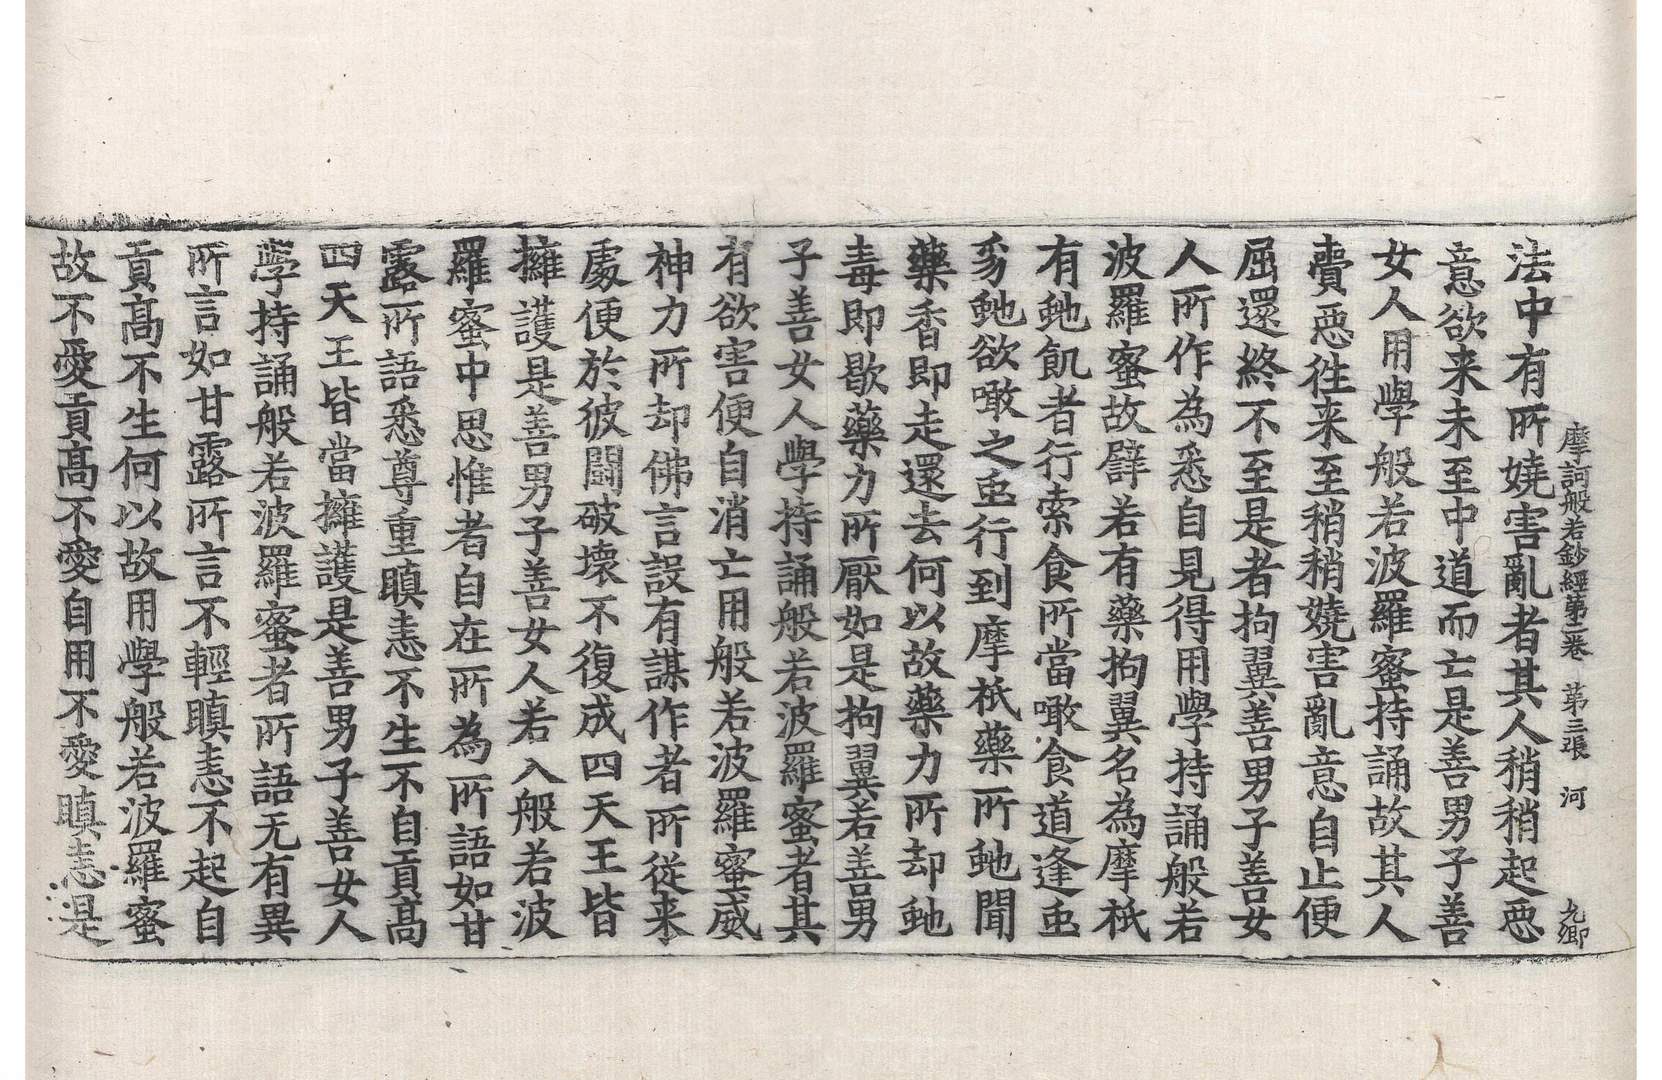 摩訶般若鈔經第二卷 第三張 河 九卿
法中有所嬈害亂者其人稍稍起惡
意欲来未至中道而亡是善男子善
女人用學般若波羅蜜持誦故其人
賷惡徃来至稍稍嬈害亂意自止便
屈還終不至是者拘翼善男子善女
人所作為悉自見得用學持誦般若
波羅蜜故譬若有藥拘翼名為摩祇
有虵飢者行索食所當噉食道逢䖝
豸虵欲噉之䖝行到摩祇藥所虵聞
藥香即走還去何以故藥力所却虵
毒即歇藥力所厭如是拘翼若善男
子善女人學持誦般若波羅蜜者其
有欲害便自消亡用般若波羅蜜威
神力所却佛言設有謀作者所從来
處便於彼鬪破壞不復成四天王皆
擁護是善男子善女人若入般若波
羅蜜中思惟者自在所為所語如甘
露所語悉尊重瞋恚不生不自貢髙
四天王皆當擁護是善男子善女人
學持誦般若波羅蜜者所語无有異
所言如甘露所言不輕瞋恚不起自
貢髙不生何以故用學般若波羅蜜
故不愛貢髙不愛自用不愛瞋恚是